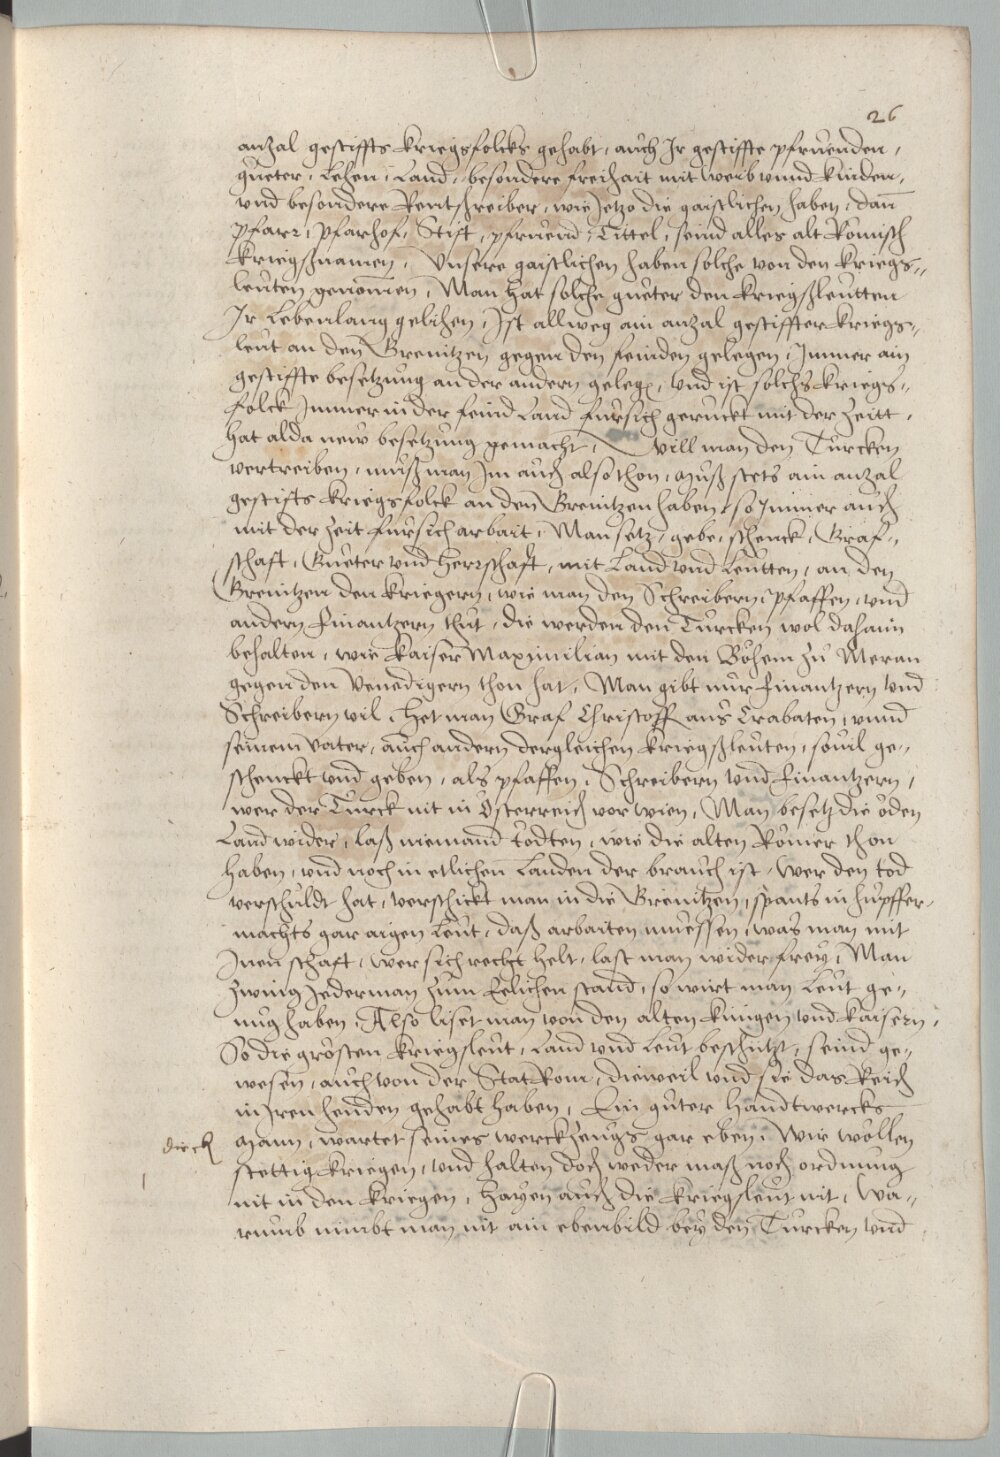 26
anzal gestiffts kriegsfolcks gehabt, auch Ir gestiffte pfruenden,
güeter, Lehen, Land, besondere freihait mit weib unnd kinden,
und besondere Rentschreiber, wie Jetzo die gaistlichen haben, dan̄
pfarr, pfarhof, Stift, pfruend, Tittel, seind alles alt Römisch
kriegßnamen, Unsere gaistlichen haben solche von den kriegs„
leuten genomen, Man hat solche güeter den kriegßleutten
Ir Lebenlang gelihen, Ist allweg ain anzal gestiffter kriegs„
leut an den Grenitzen gegen den feinden gelegen, Immer ain
gestiffte besetzung an der andern gelegen, und ist solchs kriegs„
folck Immer in der feind Land fürsich geruckt mit der Zeitt,
hat alda new besetzung gemacht, Will man den Turcken
vertreiben, muß man Im auch also thon, muß stets ain anzal
gestifts kriegsfolck an den Grenitzen haben, so Immer auch
mit der Zeit fürsich arbait, Man setz, gebe, schenck, Graf„
schaft, Güeter und herrschaft, mit Land und Leutten, an den
Grenitzen den kriegern, wie man den Schreibern, pfaffen, und
andern finantzern thut, die werden den Turcken wol dahaim
behalten, wie kaiser Maximilian mit den Böhem zu Meran
gegen den Venedigern thon hat, Man gibt nur finantzern und
Schreibern vil, het man Graf Christoff aus Crabaten, unnd
seinem vater, auch andern dergleichen kriegßleuten, sovil ge„
schenckt und geben, als pfaffen, Schreibern und finantzern,
wer der Turck nit in Österreich vor Wien, Man besetz die öden
Land wider, laß niemand tödten, wie die alten Römer thon
haben, und noch in etlichen Landen der brauch ist, wer den tod
verschuldt hat, verschickt man in die Grenitzen, spants in hupffer,
machts gar aigen Leut, daß arbaiten müessen, was man mit
Inen schaft, wer sich recht helt, last man wider frey, Man
zwing Jederman zum Eelichen stand, so wirt man Leut ge„
nug haben, Also liset man von den alten künigen und kaisern,
So die grösten kriegsleut, Land und Leut beschützt, seind ge„
wesen, auch von der Stat Rom, dieweil und sie das Reich
in Iren henden gehabt haben, Ein guter handtwercks
man, wartet seines werckzeugs gar eben, Wir wöllen
stettig kriegen, und halten doch weder maß noch ordnung
nit in den kriegen, hayen auch die kriegsleut nit, Wa„
rumb nimbt man nit ain ebenbild bey den Turcken und